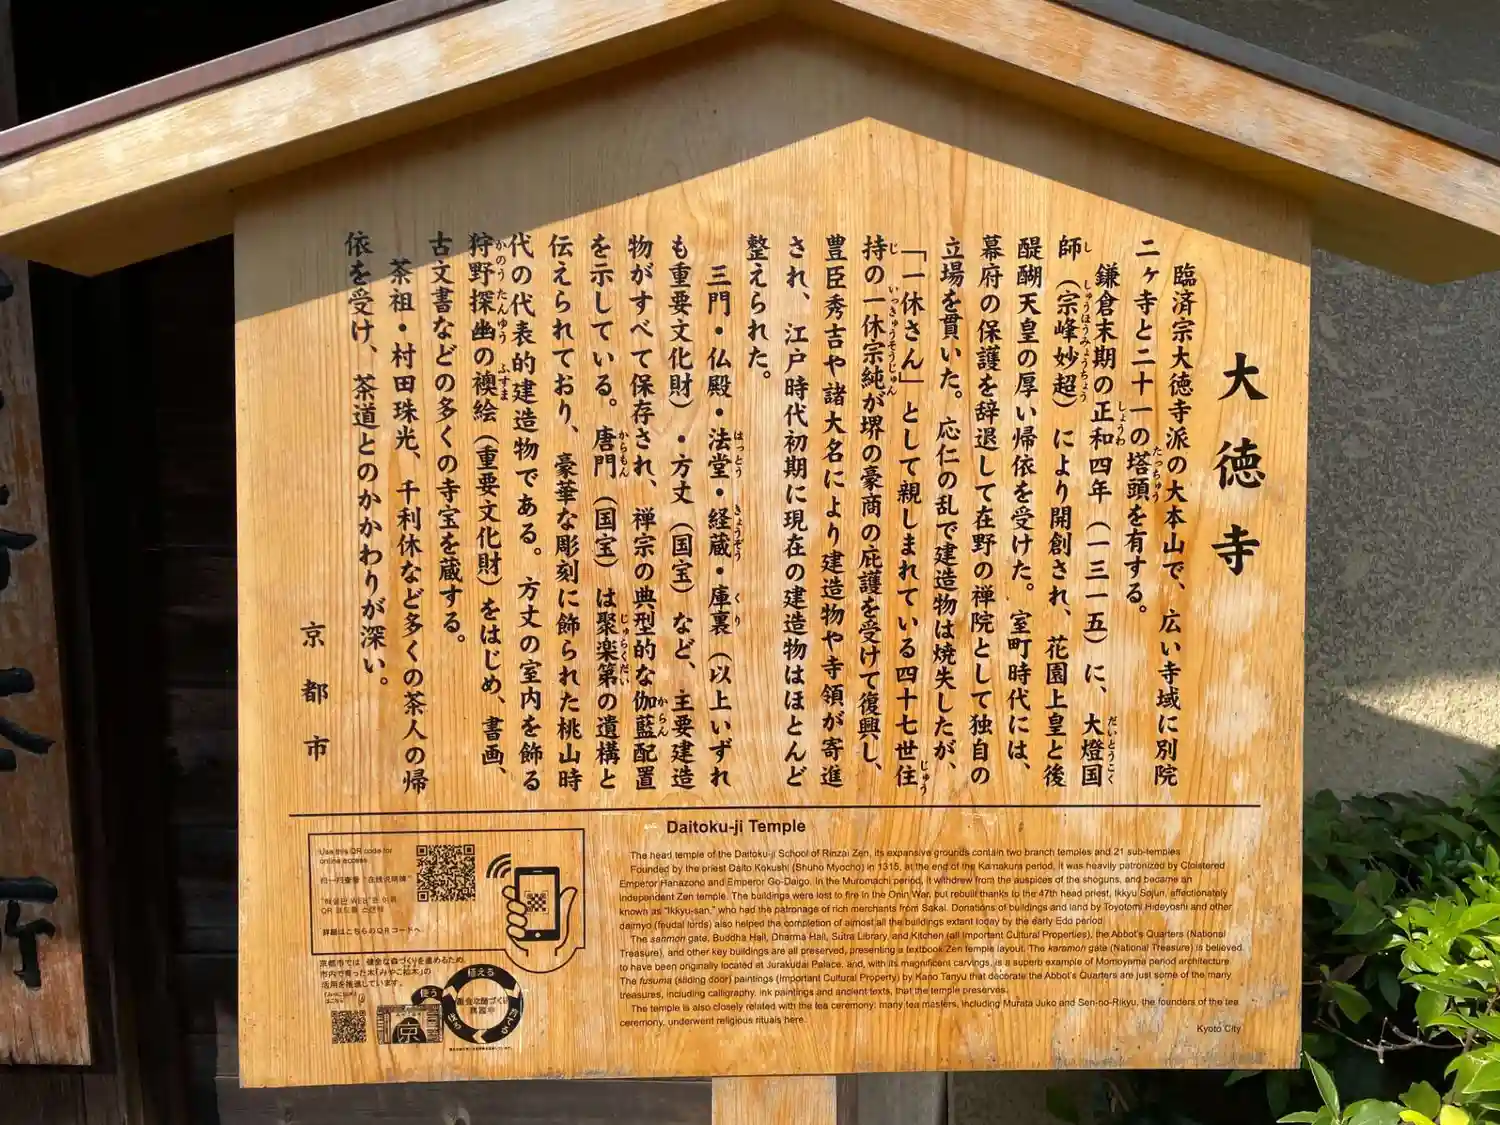 大徳寺
臨済宗大徳寺派の大本山で、広い寺域に別院
二ヶ寺と二十一の塔頭を有する。
鎌倉末期の正和四年（一三一五）に、大燈国
師（宗峰妙超）により開創され、花園上皇と後
醍醐天皇の厚い帰依を受けた。室町時代には、
幕府の保護を辞退して在野の禅院として独自の
立場を貫いた。応仁の乱で建造物は焼失したが、
「一休さん」として親しまれている四十七世住
持の一休宗純が堺の豪商の庇護を受けて復興し、
豊臣秀吉や諸大名により建造物や寺領が寄進
され、江戸時代初期に現在の建造物はほとんど
整えられた。
三門・仏殿・法堂・経蔵・庫裏（以上いずれ
も重要文化財）・方丈（国宝）など、主要建造
物がすべて保存され、禅宗の典型的な伽藍配置
を示している。唐門（国宝）は聚楽第の遺構と
伝えられており、豪華な彫刻に飾られた桃山時
代の代表的建造物である。方丈の室内を飾る
狩野探幽の襖絵（重要文化財）をはじめ、書画、
古文書などの多くの寺宝を蔵する。
茶祖・村田珠光、千利休など多くの茶人の帰
依を受け、茶道とのかかわりが深い。
京都市
Daitoku-ji Temple
The head temple of the Daitoku-ji School of Rinzai Zen, its expansive grounds contain two branch temples and 21 sub-temples
Founded by the priest Daito Kokushi (Shuho Myocho) in 1315, at the end of the Kamakura period, it was heavily patronized by Cloistered
Emperor Hanazono and Emperor Go-Daigo. In the Muromachi period, it withdrew from the auspices of the shoguns, and became an
independent Zen temple. The buildings were lost to fire in the Onin War, but rebuilt thanks to the 47th head priest, Ikkyu Sojun, affectionately
known as "Ikkyu-san," who had the patronage of rich merchants from Sakai. Donations of buildings and land by Toyotomi Hideyoshi and other
daimyo (feudal lords) also helped the completion of almost all the buildings extant today by the early Edo period
The sanmon gate, Buddha Hall, Dharma Hall, Sutra Library, and Kitchen (all Important Cultural Properties), the Abbot's Quarters (National
Treasure), and other key buildings are all preserved, presenting a textbook Zen temple layout. The karamon gate (National Treasure) is believed
to have been originally located at Jurakudai Palace, and, with its magnificent carvings, is a superb example of Momoyama period architecture.
The fusuma (sliding door) paintings (Important Cultural Property) by Kano Tanyu that decorate the Abbot's Quarters are just some of the many
treasures, including calligraphy, ink paintings and ancient texts, that the temple preserves.
The temple is also closely related with the tea ceremony: many tea masters, including Murata Juko and Sen-no-Rikyu, the founders of the tea
ceremony, underwent religious rituals here.
Kyoto City
Use this QR code for
online access.
扫一扫查看"在线说明牌"
詳細はこちらのQRコードへ
京都市では、健全な森づくりを進めるため、
市内で育った木「みやこ杣木」の
活用を推進しています。
植える
京